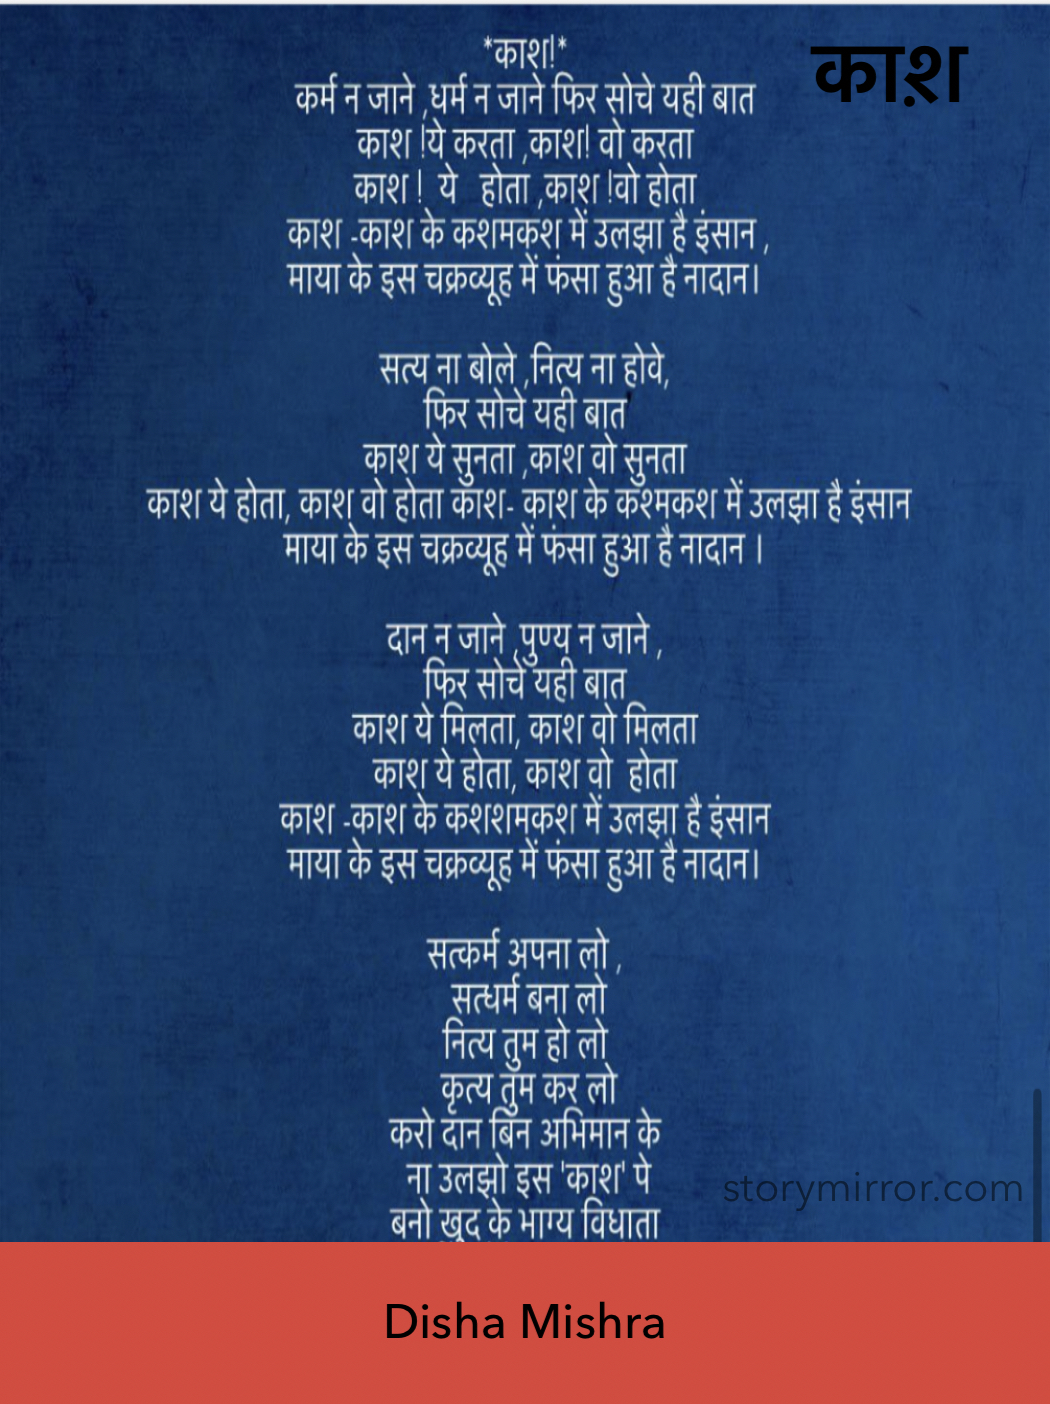 काश़
*काश!*
कर्म न जाने ,धर्म न जाने फिर सोचे यही बात
काश !ये करता ,काश! वो करता
काश ! ये होता ,काश !वो होता
काश -काश के कशमकश में उलझा है इंसान ,
माया के इस चक्रव्यूह में फंसा हुआ है नादान।
सत्य ना बोले ,नित्य ना होवे,
फिर सोचे यही बात
काश ये सुनता ,काश वो सुनता
काश ये होता, काश वो होता काश- काश के कश्मकश में उलझा है इंसान
माया के इस चक्रव्यूह में फंसा हुआ है नादान ।
दान न जाने ,पुण्य न जाने ,
फिर सोचे यही बात
काश ये मिलता, काश वो मिलता
काश ये होता, काश वो होता
काश -काश के कशशमकश में उलझा है इंसान
माया के इस चक्रव्यूह में फंसा हुआ है नादान।
सत्कर्म अपना लो ,
सत्धर्म बना लो
नित्य तुम हो लो
कृत्य तुम कर लो
करो दान बिन अभिमान के
ना उलझो इस 'काश' पे
बनो खुद के भाग्य विधाता
storymirror.com
Disha Mishra